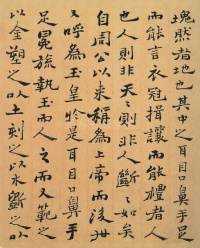 塊然者地也其中之耳目口鼻手足
而能言衣冠揖讓而能禮者人
也人則非天天則非人斷斷如矣
自周公以來稱為上帝而後世
又呼為玉皇於是耳目口鼻手
足冕旒執玉而人之而又範之
以金塑之以土刻之以木斲之以